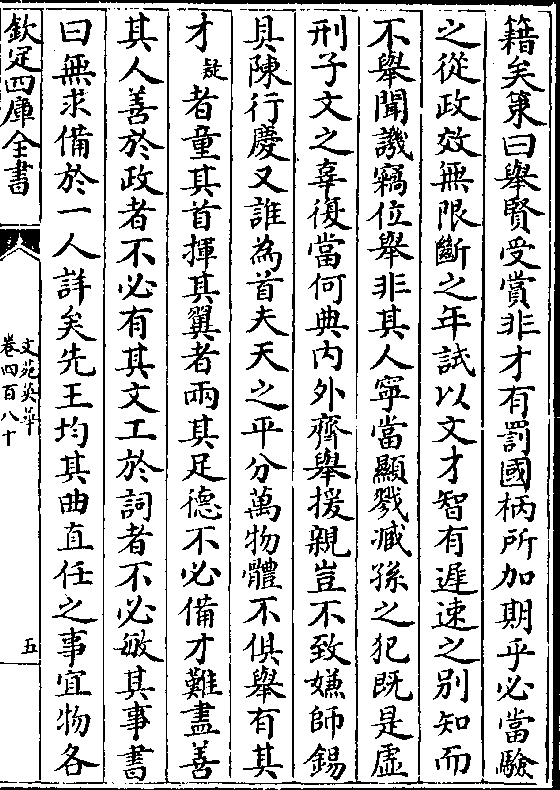 籍矣策曰舉賢受賞非才有罰國柄所加期乎必當驗
之從政效無限斷之年試以文才智有遲速之别知而
不舉聞譏竊位舉非其人寧當顯戮臧孫之犯既是虚
刑子文之辜復當何典内外齊舉援親豈不致嫌師錫
具陳行慶又誰為首夫天之平分萬物體不俱舉有其
才疑者童其首揮其翼者兩其足德不必備才難盡善
其人善於政者不必有其文工於詞者不必敏其事書
曰無求備於一人詳矣先王均其曲直任之事宜物各
欽定四庫全書
文苑英華
卷四百八十
五